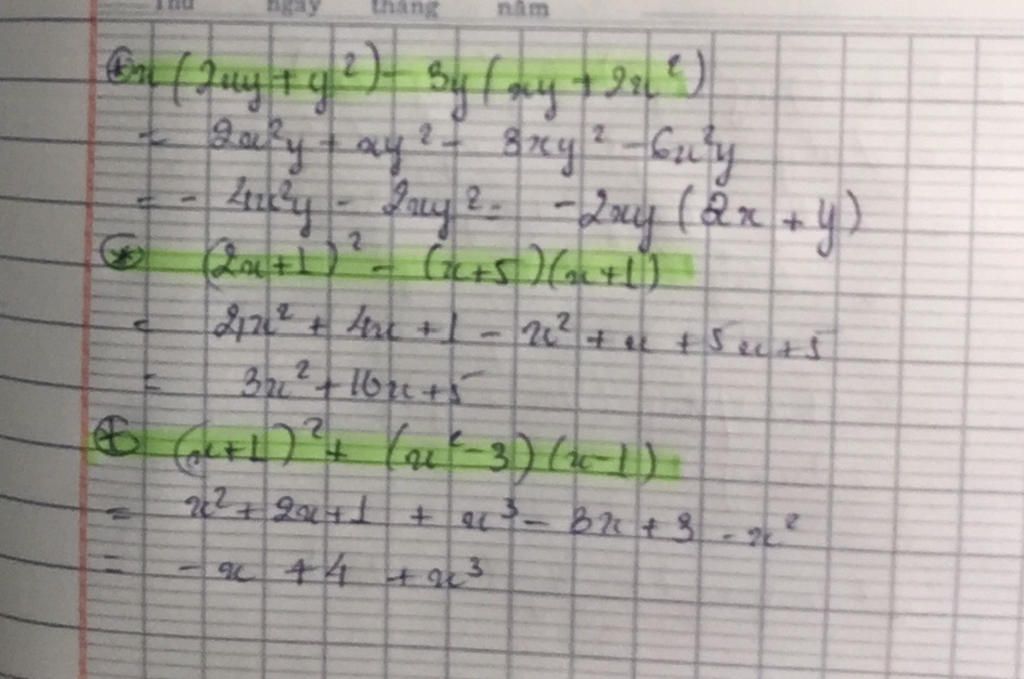 Thứ ngày tháng năm
⊕ x(2xy + y²) - 3y(xy + 2x²)
= 2x²y + xy² - 3xy² - 6x²y
= - 4x²y - 2xy² = -2xy(2x + y)
⊛ (2x+1)² - (x+5)(x+1)
= 4x² + 4x + 1 - x² + x + 5x + 5
= 3x² + 10x + 5
⊕ (x+1)² + (x² - 3)(x - 1)
= x² + 2x + 1 + x³ - 3x + 3 - x²
= - x + 4 + x³